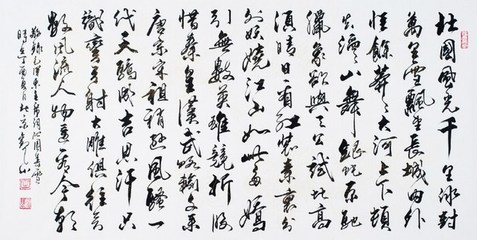 北國風光千里冰封
萬里雪飄望長城內外
惟餘莽莽大河上下頓
失滔滔山舞銀蛇原馳
臘象欲與天公試比高
須晴日看紅裝素裹分
外妖嬈江山如此多嬌
引無數英雄競折腰
惜秦皇漢武略輸文采
唐宗宋祖稍遜風騷一
代天驕成吉思汗只
識彎弓射大雕俱往矣
數風流人物還看今朝
敬錄毛澤東主席詞沁園春雪
時在丁酉夏月北京